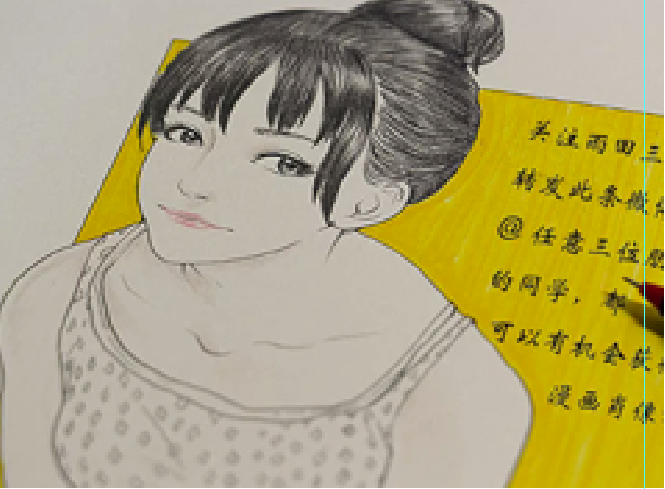 关注雨田三
转发此条微
@任意三位朋
的同学，都
可以有机会获
漫画肖像